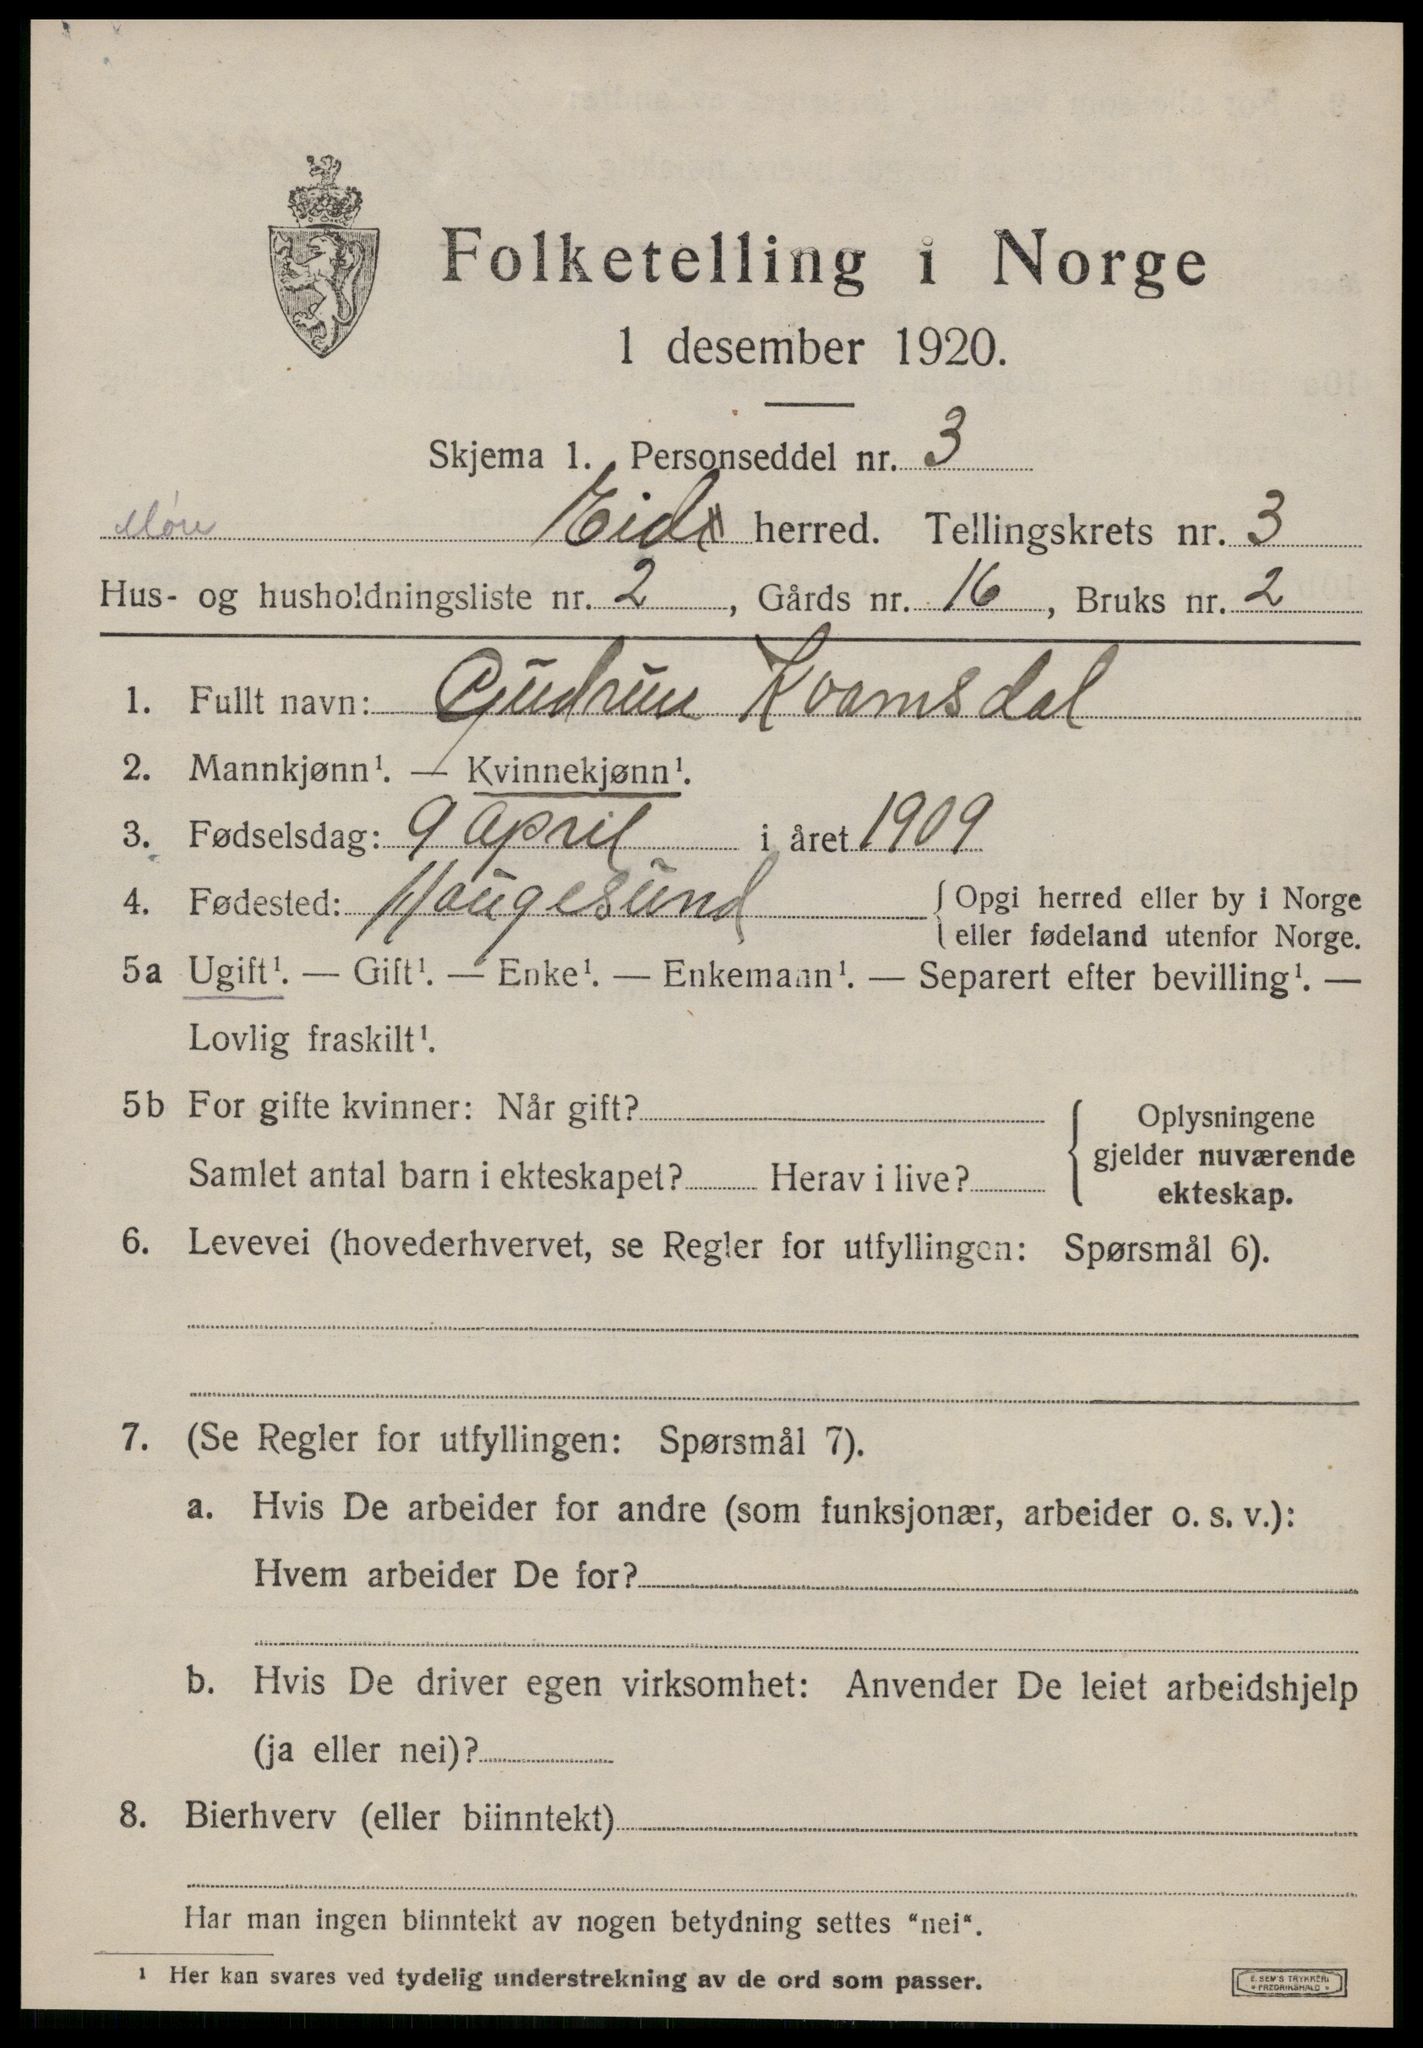 Folketelling i Norge
1 desember 1920.
Skjema 1. Personseddel nr. 3
Møre Eid herred. Tellingskrets nr. 3
Hus- og husholdningsliste nr. 2, Gårds nr. 16, Bruks nr. 2
1. Fullt navn: Gudrun Kvamsdal
2. Mannkjønn¹. — Kvinnekjønn¹.
3. Fødselsdag: 9 April i året 1909
4. Fødested: Haugesund { Opgi herred eller by i Norge
eller fødeland utenfor Norge.
5a Ugift¹. — Gift¹. — Enke¹. — Enkemann¹. — Separert efter bevilling¹. —
Lovlig fraskilt¹.
5b For gifte kvinner: Når gift?
Samlet antal barn i ekteskapet? Herav i live?
Oplysningene
gjelder nuværende
ekteskap.
6. Levevei (hovederhvervet, se Regler for utfyllingen: Spørsmål 6).
7. (Se Regler for utfyllingen: Spørsmål 7).
a. Hvis De arbeider for andre (som funksjonær, arbeider o. s. v.):
Hvem arbeider De for?
b. Hvis De driver egen virksomhet: Anvender De leiet arbeidshjelp
(ja eller nei)?
8. Bierhverv (eller biinntekt)
Har man ingen biinntekt av nogen betydning settes “nei“.
¹ Her kan svares ved tydelig understrekning av de ord som passer.
E. SEM'S TRYKKERI
FREDRIKSHALD